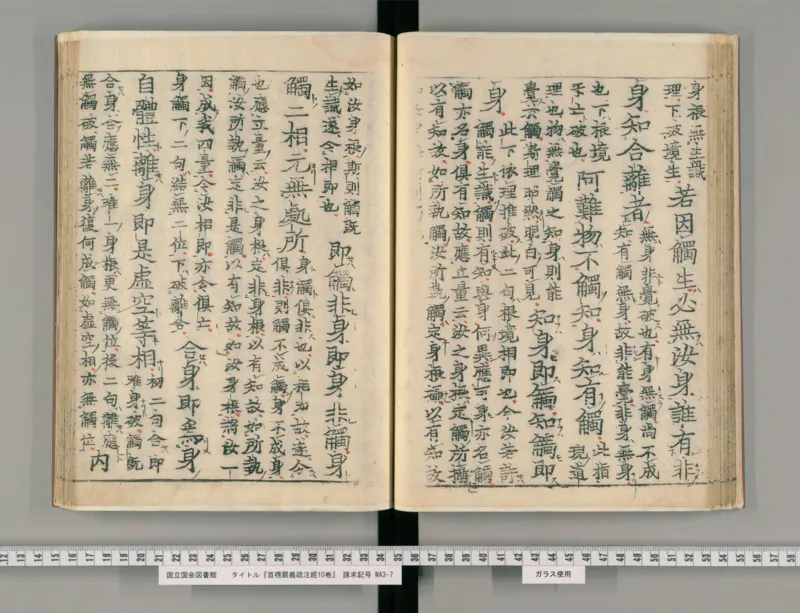 身根無生識
理下破境生
若因觸生必無汝身誰有非
身知合離者
無身非覺破也有身無觸尚不成
知有觸無身故非能覺非身無身
也下根境
牙亡破也
阿難物不觸知身知有觸
此指
現道
理也物無覺觸之知身則能
覺六觸塵理昭然明白可見
知身即觸知觸即
身
此下依理推破此二句根境相即也令汝若許
觸能生識觸則有知與身何異應可身亦名觸
觸亦名身俱有知故應立量云汝之身根定觸所攝
以有知故如所執觸汝所執觸定身根攝以有知故
如汝身根斯則觸既
生識遂令相即也
即觸非身即身非觸身
觸二相元無處所
身觸俱非也以相知故遂令
俱非則觸不成觸身不成身
也應立量云汝之身根定非身根以有知故如所執
觸汝所執觸定非是觸以有知故如汝身根將汝一
因成我四量令汝相即亦令俱亡
身觸下二句結無二位下破離合
合身即為身
自體性離身即是虛空等相
初二句合即
唯身破觸既
合身合應無二唯一身根更無觸位後二句離應
無觸破觸若離身復何成觸如虛空相亦無觸位
内
国立国会図書館 タイトル『首楞嚴義疏注經10巻』 請求記号 WA3-7
ガラス使用